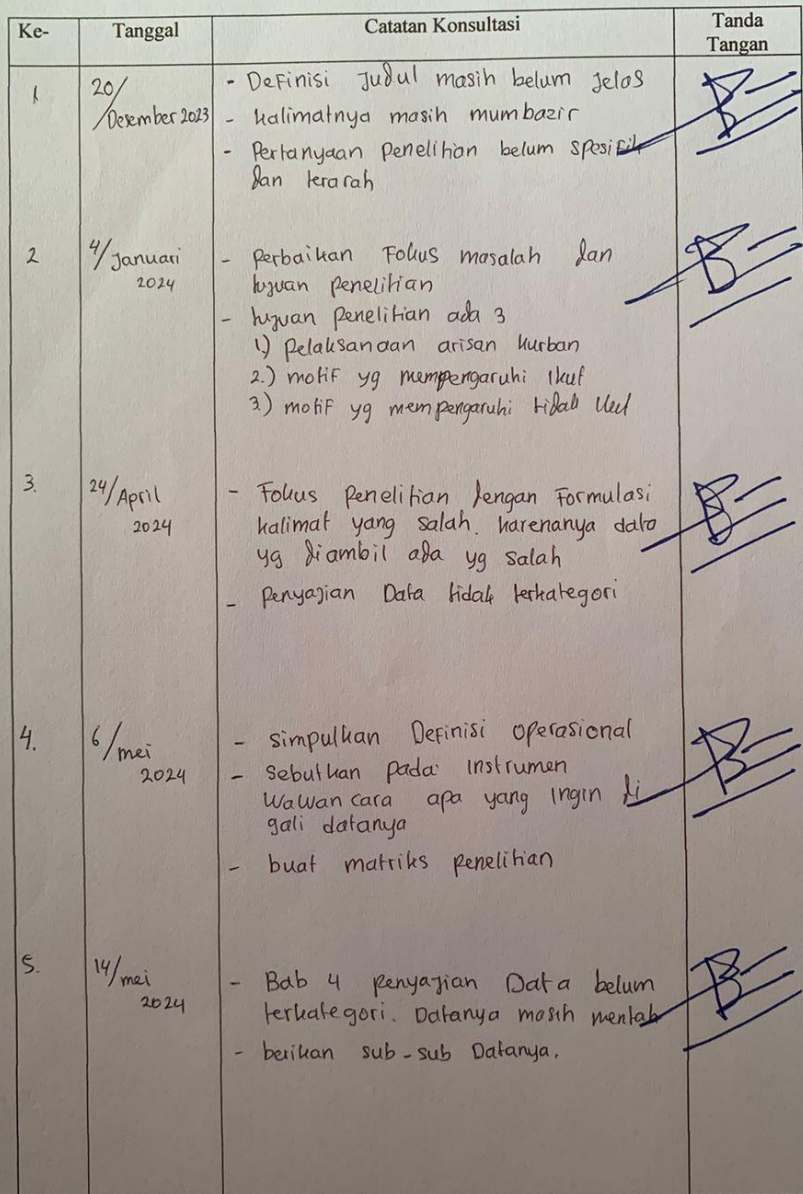 Ke- Tanggal Catatan Konsultasi Tanda
Tangan
1 20/ - Definisi Judul masih belum Jelas
Desember 2023 - kalimatnya masih mumbazir
- Pertanyaan Penelitian belum spesifik
dan terarah
2 4/Januari - Perbaikan Fokus masalah dan
2024 tujuan penelitian
- tujuan Penelitian ada 3
1) Pelaksanaan arisan kurban
2.) motif yg mempengaruhi Ikut
3) motif yg mempengaruhi tidak Ikut
3. 24/April - Fokus Penelitian dengan Formulasi
2024 kalimat yang salah. karenanya data
yg diambil ada yg salah
- Penyajian Data tidak terkategori
4. 6/mei - simpulkan Definisi operasional
2024 - Sebutkan pada Instrumen
Wawancara apa yang Ingin di
gali datanya
- buat matriks penelitian
5. 14/mei - Bab 4 Penyajian Data belum
2024 terkategori. Datanya masih mentah
- berikan sub-sub Datanya.